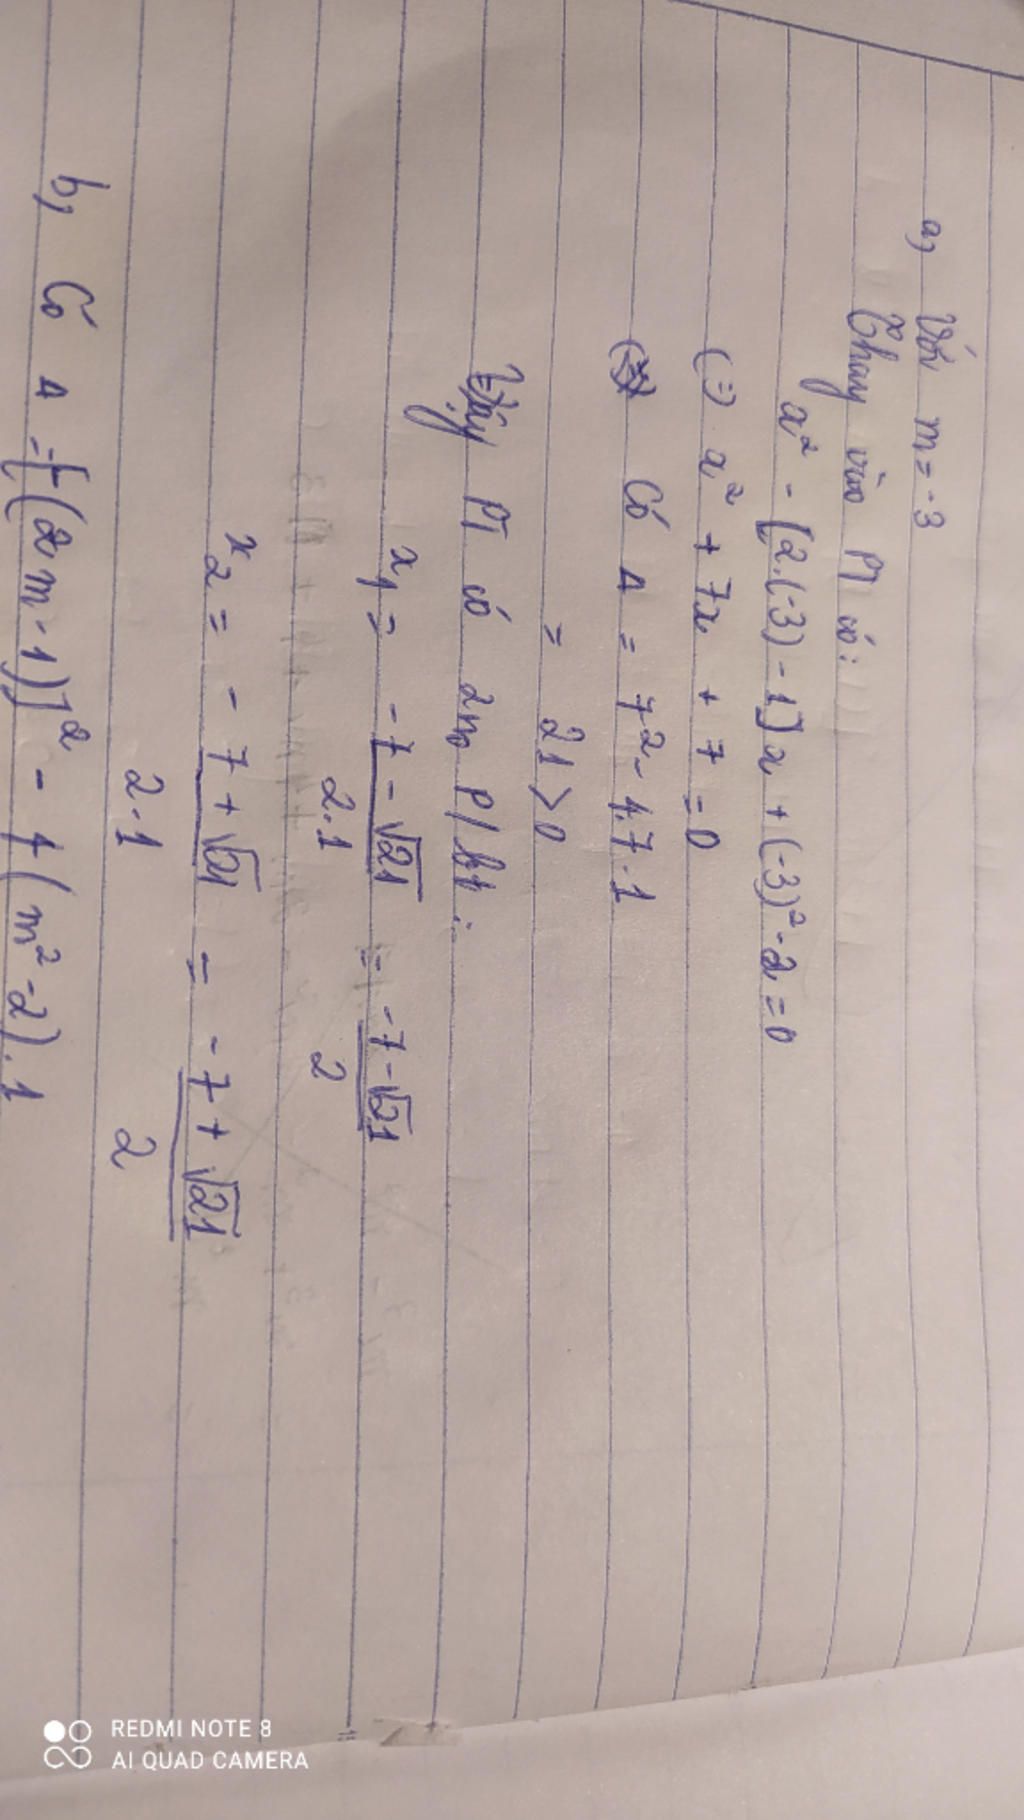 a, Với m = -3
Thay vào PT có:
x² - [2.(-3) - 1]x + (-3)² - 2 = 0
(=) x² + 7x + 7 = 0
Có Δ = 7² - 4.7.1
= 21 > 0
Vậy PT có 2 no P/bt:
x₁ = -7 - √21 / 2.1 = -7 - √21 / 2
x₂ = -7 + √21 / 2.1 = -7 + √21 / 2
b, Có Δ = [-(2m-1)]² - 4(m² - 2).1
REDMI NOTE 8
AI QUAD CAMERA